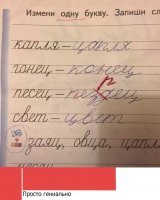 Измени одну букву. Запиши сл
капля – цапля
гонец – конец
песец – пездец
свет – цвет
заяц, овца, цапл
Просто гениально